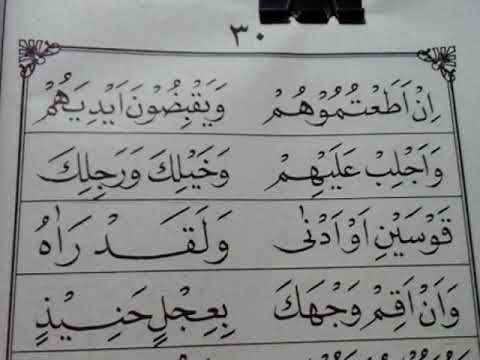 ٣٠
اِنْ اَطَعْتُمُوْهُمْ وَيَقْبِضُوْنَ اَيْدِيَهُمْ
وَاَجْلِبْ عَلَيْهِمْ وَخَيْلِكَ وَرَجِلِكَ
قَوْسَيْنِ اَوْ اَدْنٰى وَلَقَدْ رَاٰهُ
وَاَنْ اَقِمْ وَجْهَكَ بِعِجْلٍ حَنِيْذٍ